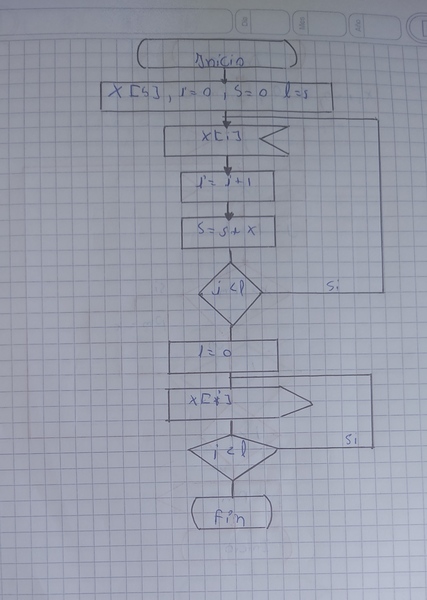 Inicio
X [5], i=0, S=0 l=5
X[i]
i = i+1
S=S+X
i<l
Si
i=0
X[i]
i<l
Si
Fin